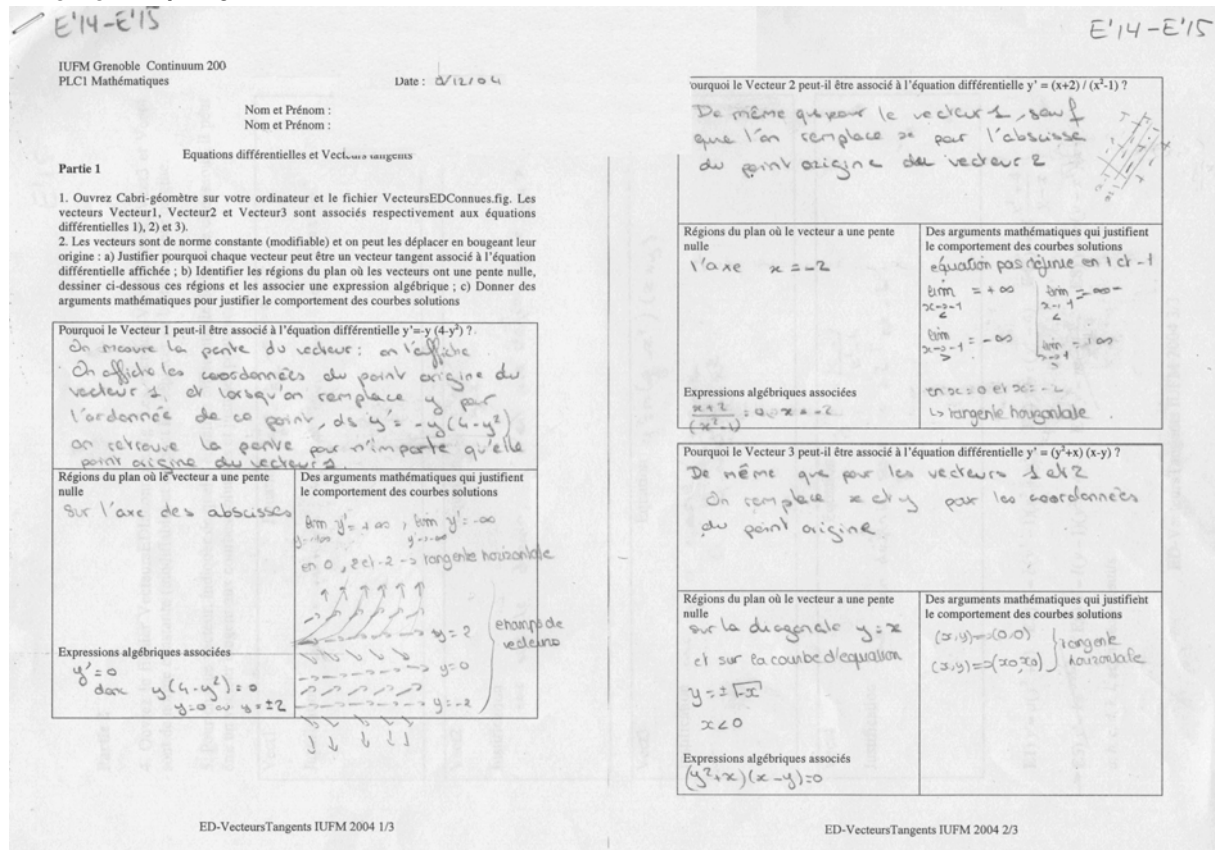 E'14-E'15
IUFM Grenoble Continuum 200
PLC1 Mathématiques
Date : /12/04
Nom et Prénom :
Nom et Prénom :
Equations différentielles et Vecteurs tangents
Partie 1
1. Ouvrez Cabri-géomètre sur votre ordinateur et le fichier VecteursEDConnues.fig. Les
vecteurs Vecteur1, Vecteur2 et Vecteur3 sont associés respectivement aux équations
différentielles 1), 2) et 3).
2. Les vecteurs sont de norme constante (modifiable) et on peut les déplacer en bougeant leur
origine : a) Justifier pourquoi chaque vecteur peut être un vecteur tangent associé à l'équation
différentielle affichée ; b) Identifier les régions du plan où les vecteurs ont une pente nulle,
dessiner ci-dessous ces régions et les associer une expression algébrique ; c) Donner des
arguments mathématiques pour justifier le comportement des courbes solutions
Pourquoi le Vecteur 1 peut-il être associé à l'équation différentielle y'=-y (4-y²) ?
On mesure la pente du vecteur : on l'affiche
On affiche les coordonnées du point origine du
vecteur 1, et lorsqu'on remplace y par
l'ordonnée de ce point, ds y' = -y(4-y²)
on retrouve la pente pour n'importe qu'elle
point origine du vecteur 1.
Régions du plan où le vecteur a une pente
nulle
Sur l'axe des abscisses
Expressions algébriques associées
y'=0
donc y(4-y²)=0
y=0 ou y=±2
Des arguments mathématiques qui justifient
le comportement des courbes solutions
lim y' = +∞ , lim y' = -∞
en 0, 2 et -2 -> tangente horizontale
y=2
y=0
y=-2
champ de
vecteurs
ED-VecteursTangents IUFM 2004 1/3
E'14-E'15
ourquoi le Vecteur 2 peut-il être associé à l'équation différentielle y' = (x+2) / (x²-1) ?
De même que pour le vecteur 1, sauf
que l'on remplace x par l'abscisse
du point origine du vecteur 2
Régions du plan où le vecteur a une pente
nulle
l'axe x = -2
Expressions algébriques associées
(x+2)/(x²-1) = 0 x = -2
Des arguments mathématiques qui justifient
le comportement des courbes solutions
équation pas définie en 1 et -1
lim = +∞ lim = -∞
x->-1 x->1
< <
lim = -∞ lim = +∞
x->-1 x->1
> >
en x=0 et x=-2
↳ tangente horizontale
Pourquoi le Vecteur 3 peut-il être associé à l'équation différentielle y' = (y²+x) (x-y) ?
De même que pour les vecteurs 1 et 2
On remplace x et y par les coordonnées
du point origine
Régions du plan où le vecteur a une pente
nulle
sur la diagonale y=x
et sur la courbe d'equation
y = ±√-x
x<0
Expressions algébriques associées
(y²+x)(x-y)=0
Des arguments mathématiques qui justifient
le comportement des courbes solutions
(x,y)=(0,0)
(x,y)=(x0,x0)
tangente
horizontale
ED-VecteursTangents IUFM 2004 2/3